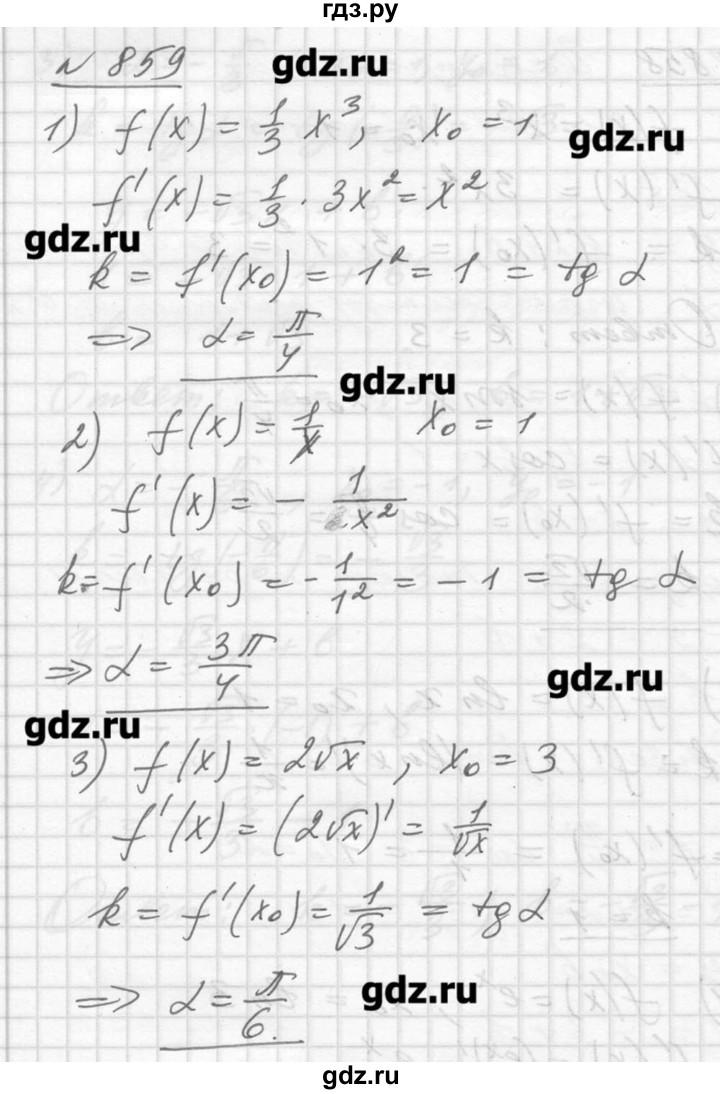 гдз.ру
N 859
gdz.ru
1) f(x) = 1/3 x³, x₀ = 1
gdz.ru
f'(x) = 1/3 · 3x² = x²
gdz.ru
k = f'(x₀) = 1² = 1 = tg α
=> α = π/4
gdz.ru
2) f(x) = 1/x x₀ = 1
f'(x) = - 1/x²
k = f'(x₀) = - 1/1² = - 1 = tg α
=> α = 3π/4
gdz.ru
gdz.ru
3) f(x) = 2√x , x₀ = 3
f'(x) = (2√x)' = 1/√x
k = f'(x₀) = 1/√3 = tg α
=> α = π/6.
gdz.ru
gdz.ru